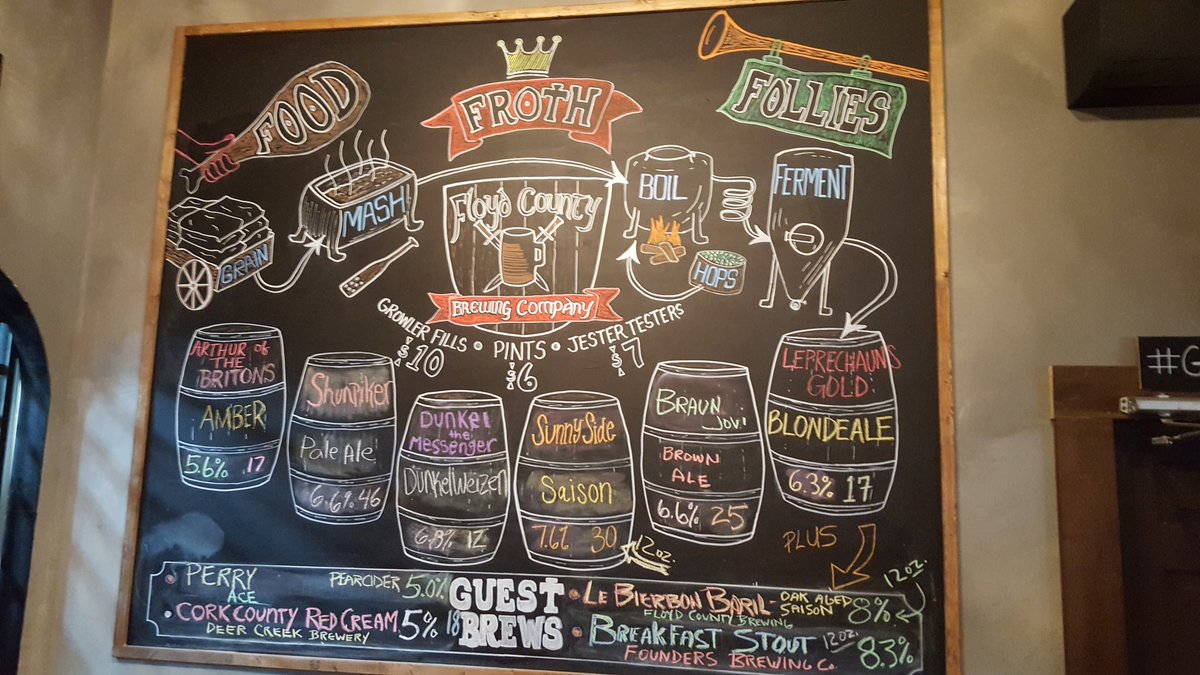 FOOD
FROTH
FOLLIES
GRAIN
MASH
Floyd County
BREWING COMPANY
BOIL
HOPS
FERMENT
GROWLER FILLS • PINTS • JESTER TESTERS
$10
$6
$7
ARTHUR of
THE
BRITONS
AMBER
5.6% 17
Shunpiker
Pale Ale
6.6% 46
DUNKEL
the
Messenger
DUNKELWEIZEN
6.8% 12
SunnySide
Saison
7.61 30
12oz.
BRAUN
JOVI
BROWN
ALE
6.6% 25
LEPRECHAUNS
GOLD
BLONDEALE
6.3% 17
PLUS
GUEST
BREWS
• PERRY PEARCIDER 5.0%
ACE
• CORKCOUNTY RED CREAM 5% 18
DEER CREEK BREWERY
• LE BIERBON BARIL - OAK AGED
SAISON 8% 12oz.
FLOYD COUNTY BREWING
• BREAKFAST STOUT 12oz. 8.3%
FOUNDERS BREWING CO.
#G